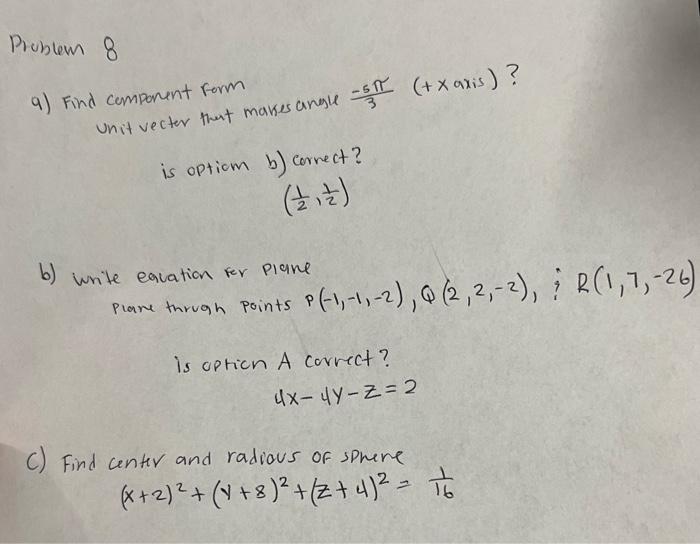 Problem 8
a) Find component form
unit vector that makes angle -5π/3 (+x axis)?
is option b) correct?
(1/2, 1/2)
b) write equation for plane
Plane through points P(-1,-1,-2), Q(2,2,-2), & R(1,7,-26)
is option A correct?
4x-4y-z=2
c) Find center and radious of sphere
(x+2)²+(y+8)²+(z+4)² = 1/16